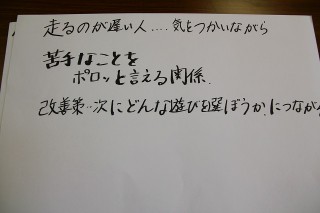 走るのが遅い人....気をつかいながら
苦手なことを
ポロッと言える関係.
改善策..次にどんな遊びを選ぼうか.につながる